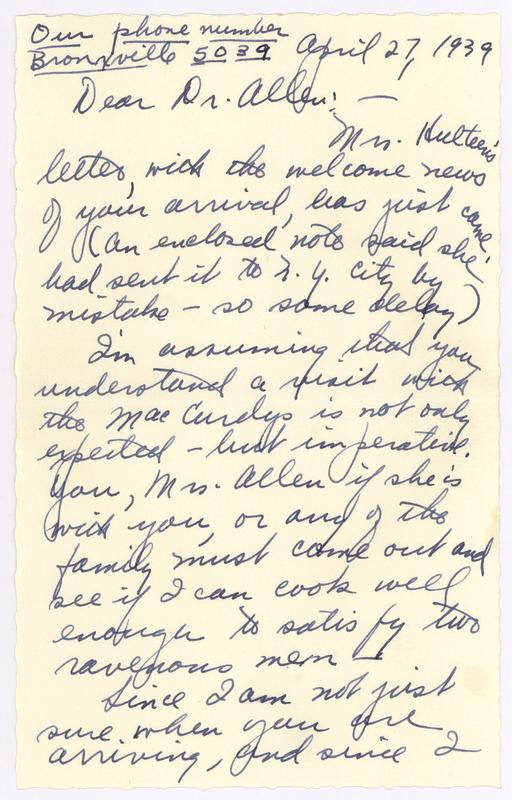 Our phone number
Bronxville 5039
April 27, 1939
Dear Dr. Allen: —
Mrs. Hulteen's
letter, with the welcome news
of your arrival, has just came.
(An enclosed note said she
had sent it to N.Y. City by
mistake - so some delay)
I'm assuming that you
understand a visit with
the MacCurdys is not only
expected - but imperative.
You, Mrs. Allen if she is
with you, or any of the
family must come out and
see if I can cook well
enough to satisfy two
ravenous men —
Since I am not just
sure when you are
arriving, and since I